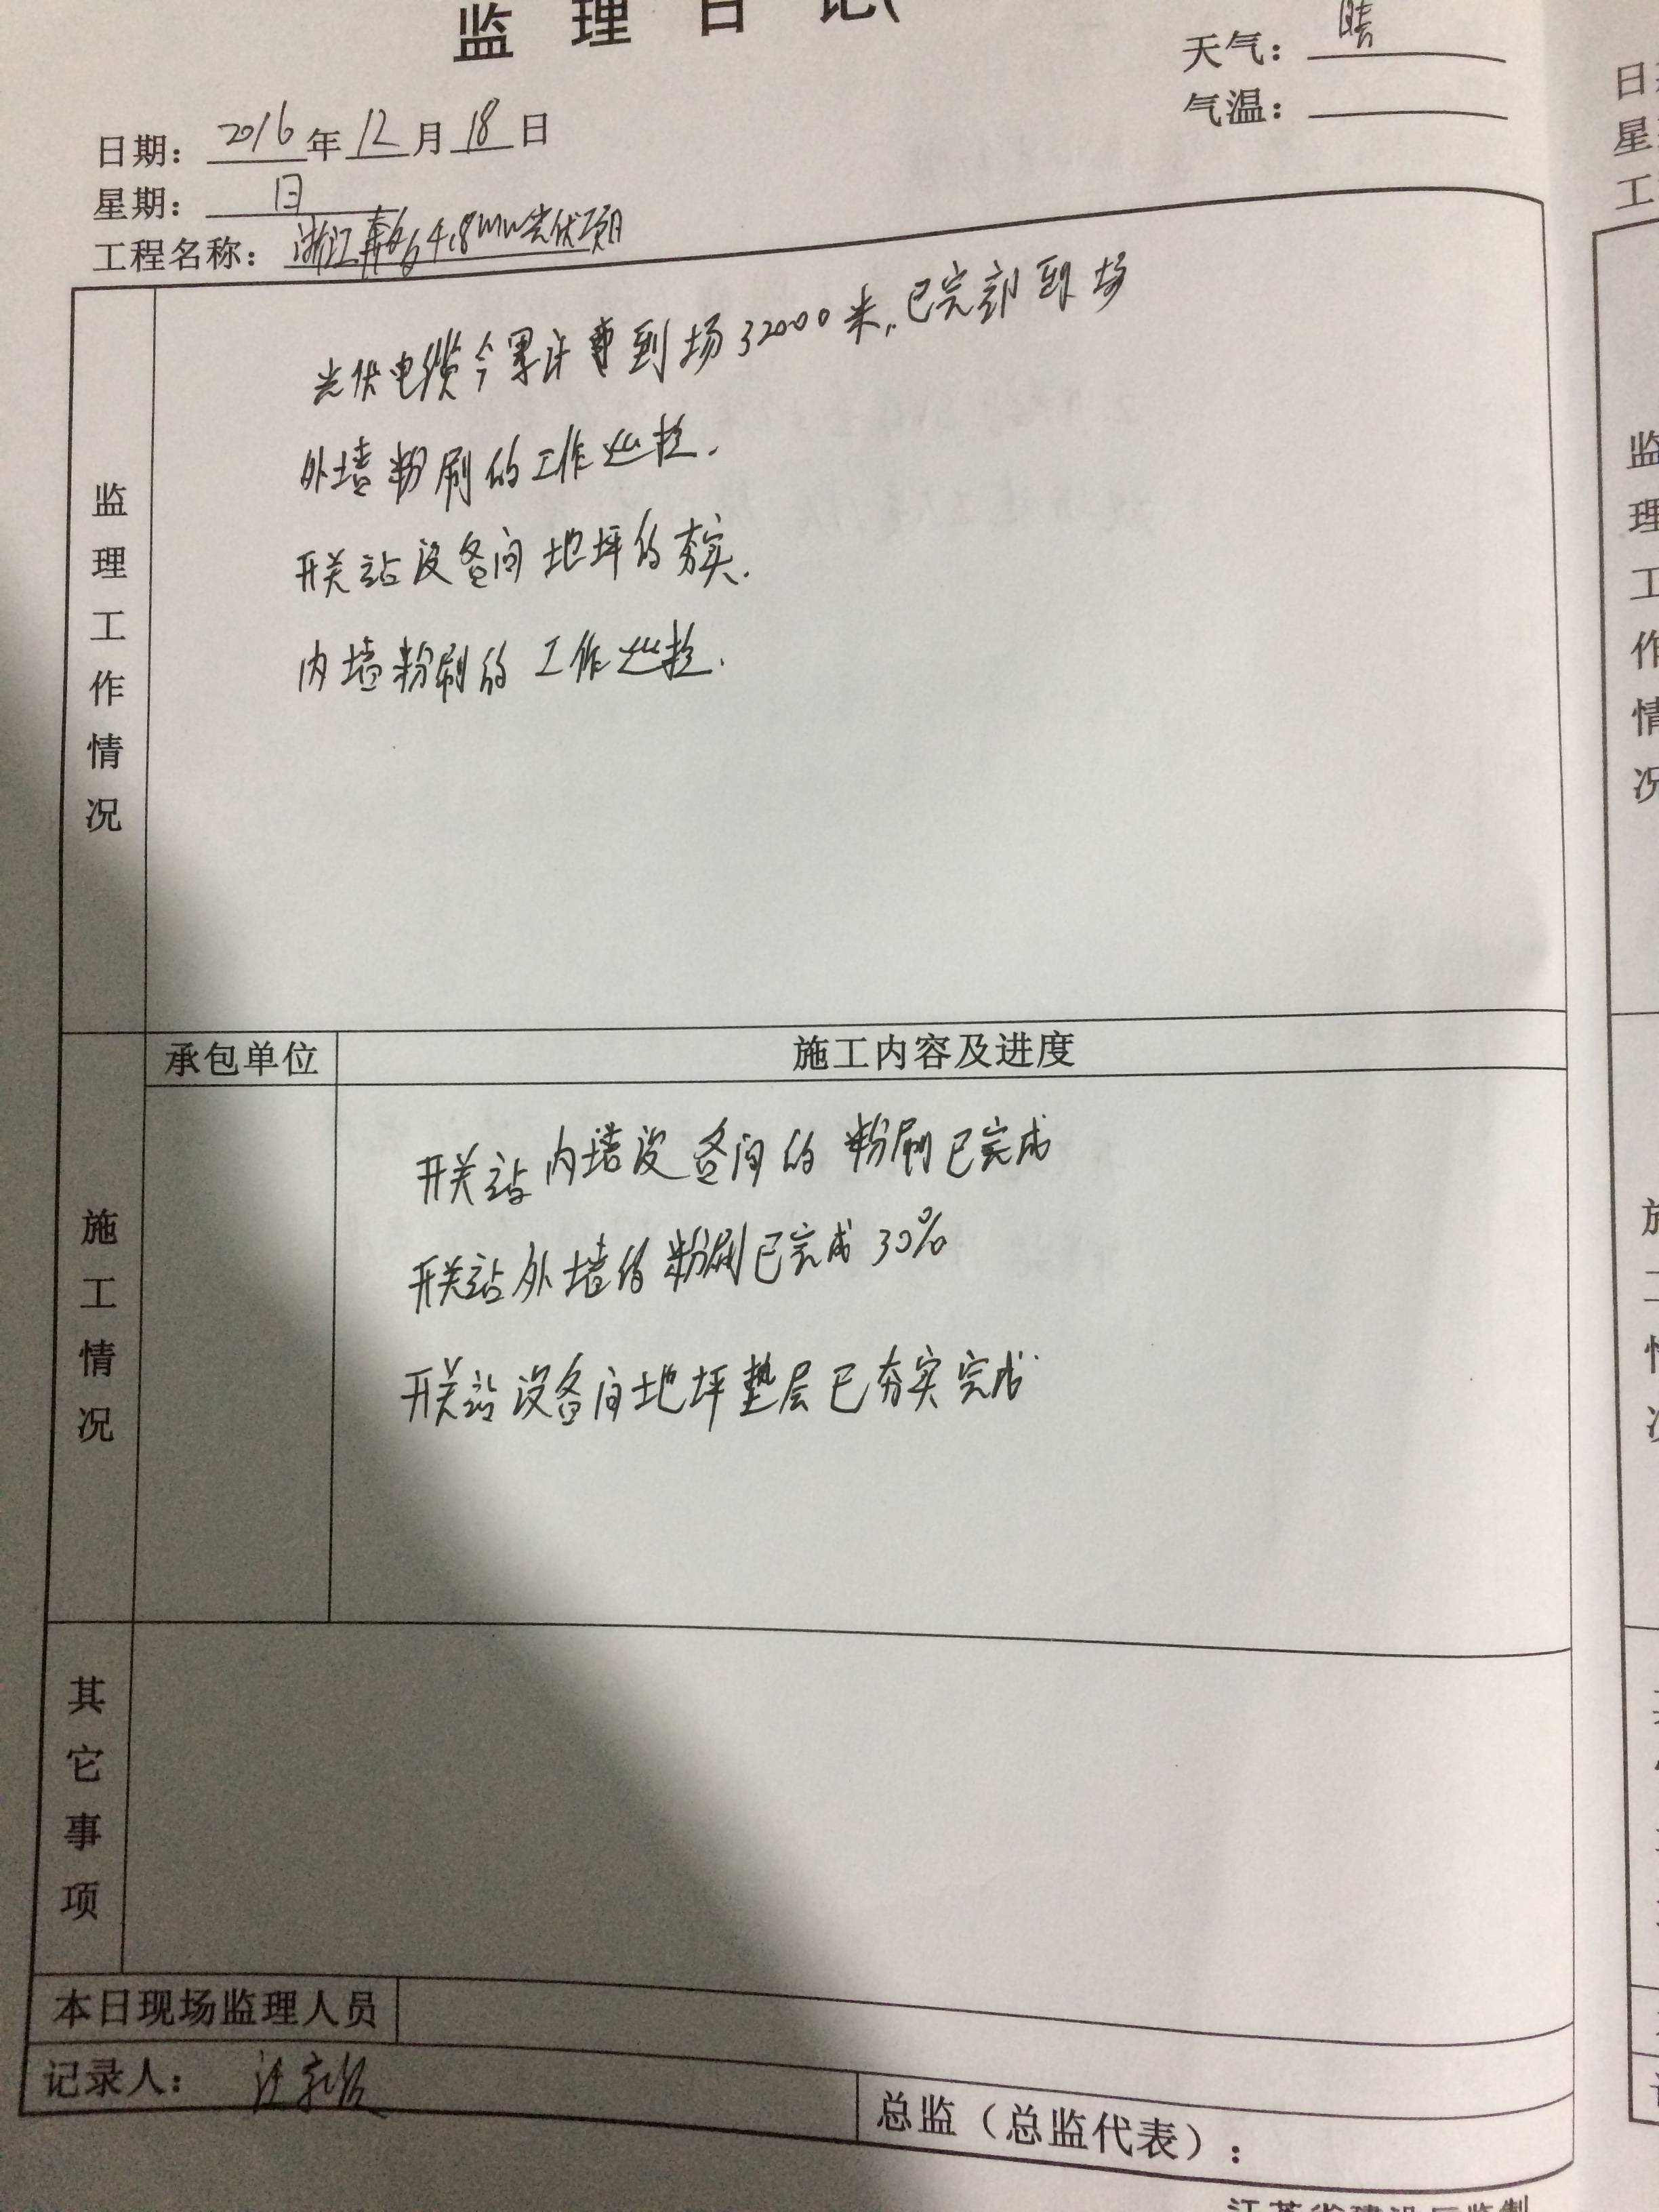 监理日记
天气：晴
气温：
日期：2016年12月18日
星期：日
工程名称：浙江奔 4.8MW光伏项目
监理工作情况
光伏电缆今累计到场32000米,已完部到场
外墙粉刷的工作巡检.
开关站设备间地坪的夯实.
内墙粉刷的工作巡检.
承包单位
施工内容及进度
施工情况
开关站内墙设备间的粉刷已完成
开关站外墙的粉刷已完成30%
开关站设备间地坪垫层已夯实完成
其它事项
本日现场监理人员
记录人：
总监（总监代表）：
江苏省建设厅监制